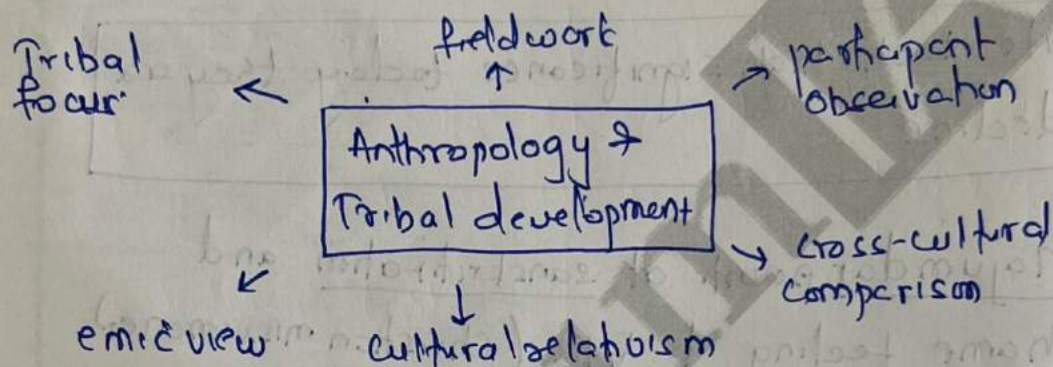 Tribal
focus
fieldwork
participant
observation
Anthropology &
Tribal development
cross-cultural
comparison
emic view
cultural relativism